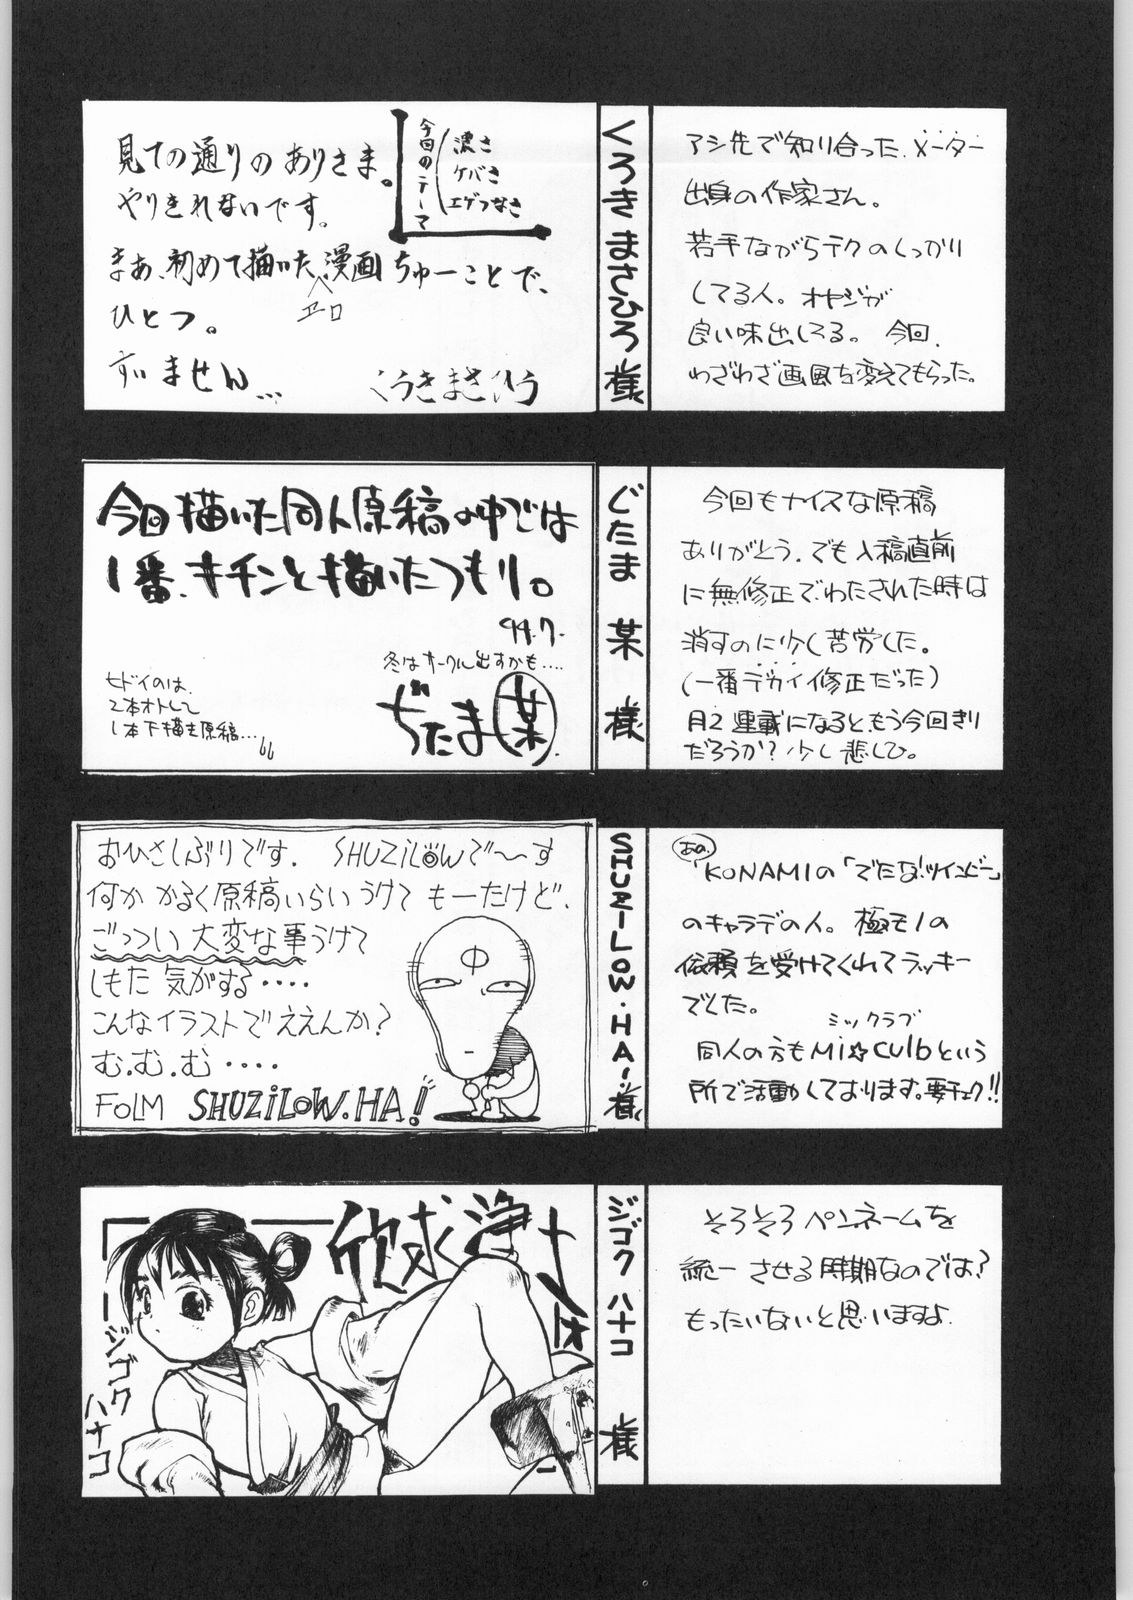 見ての通りのありさま。
やりきれないです。
まあ、初めて描いた漫画ちゅーことで、
エロ
ひとつ。
すいません...
くろきまさひろ
今回のテーマ
濃さ
ケバさ
エゲつなさ
くろきまさひろ様
アシ先で知り合った、メーター
出身の作家さん。
若手ながらテクのしっかり
してる人。オヤジが
良い味出してる。今回、
わざわざ画風を変えてもらった。
今回描いた同人原稿の中では
1番、キチンと描いたつもり。
94.7.
冬はサークル出すかも....
ヒドイのは、
2本オトして
1本下描き原稿...
ぢたま某
ぢたま某様
今回もナイスな原稿
ありがとう。でも入稿直前
に無修正でわたされた時は
消すのに少し苦労した。
(一番デカイ修正だった)
月2連載になると、もう今回きり
だろうか?少し悲しい。
おひさしぶりです. SHUZILOWで〜す
何か かるく原稿いらいうけて もーたけど、
ごっつい大変な事うけて
しもた気がする・・・・
こんなイラストでええんか?
む.む.む・・・・
FOLM SHUZILOW.HA!
中
SHUZILOW・HA!様
あの
KONAMIの「でたな!ツインビー」
のキャラデの人。極モノの
依頼を受けてくれてラッキー
でした。
ミックラブ
同人の方もMi☆Culbという
所で活動しております。要チェック!!
欣求浄土
ジゴク
ハナコ
ジゴク ハナコ 様
そろそろペンネームを
統一させる時期なのでは?
もったいないと思いますよ.